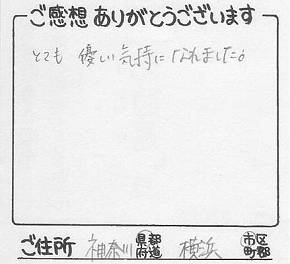 ご感想 ありがとうございます
とても 優しい気持になれました。
ご住所 神奈川 県都府道 横浜 市区町郡